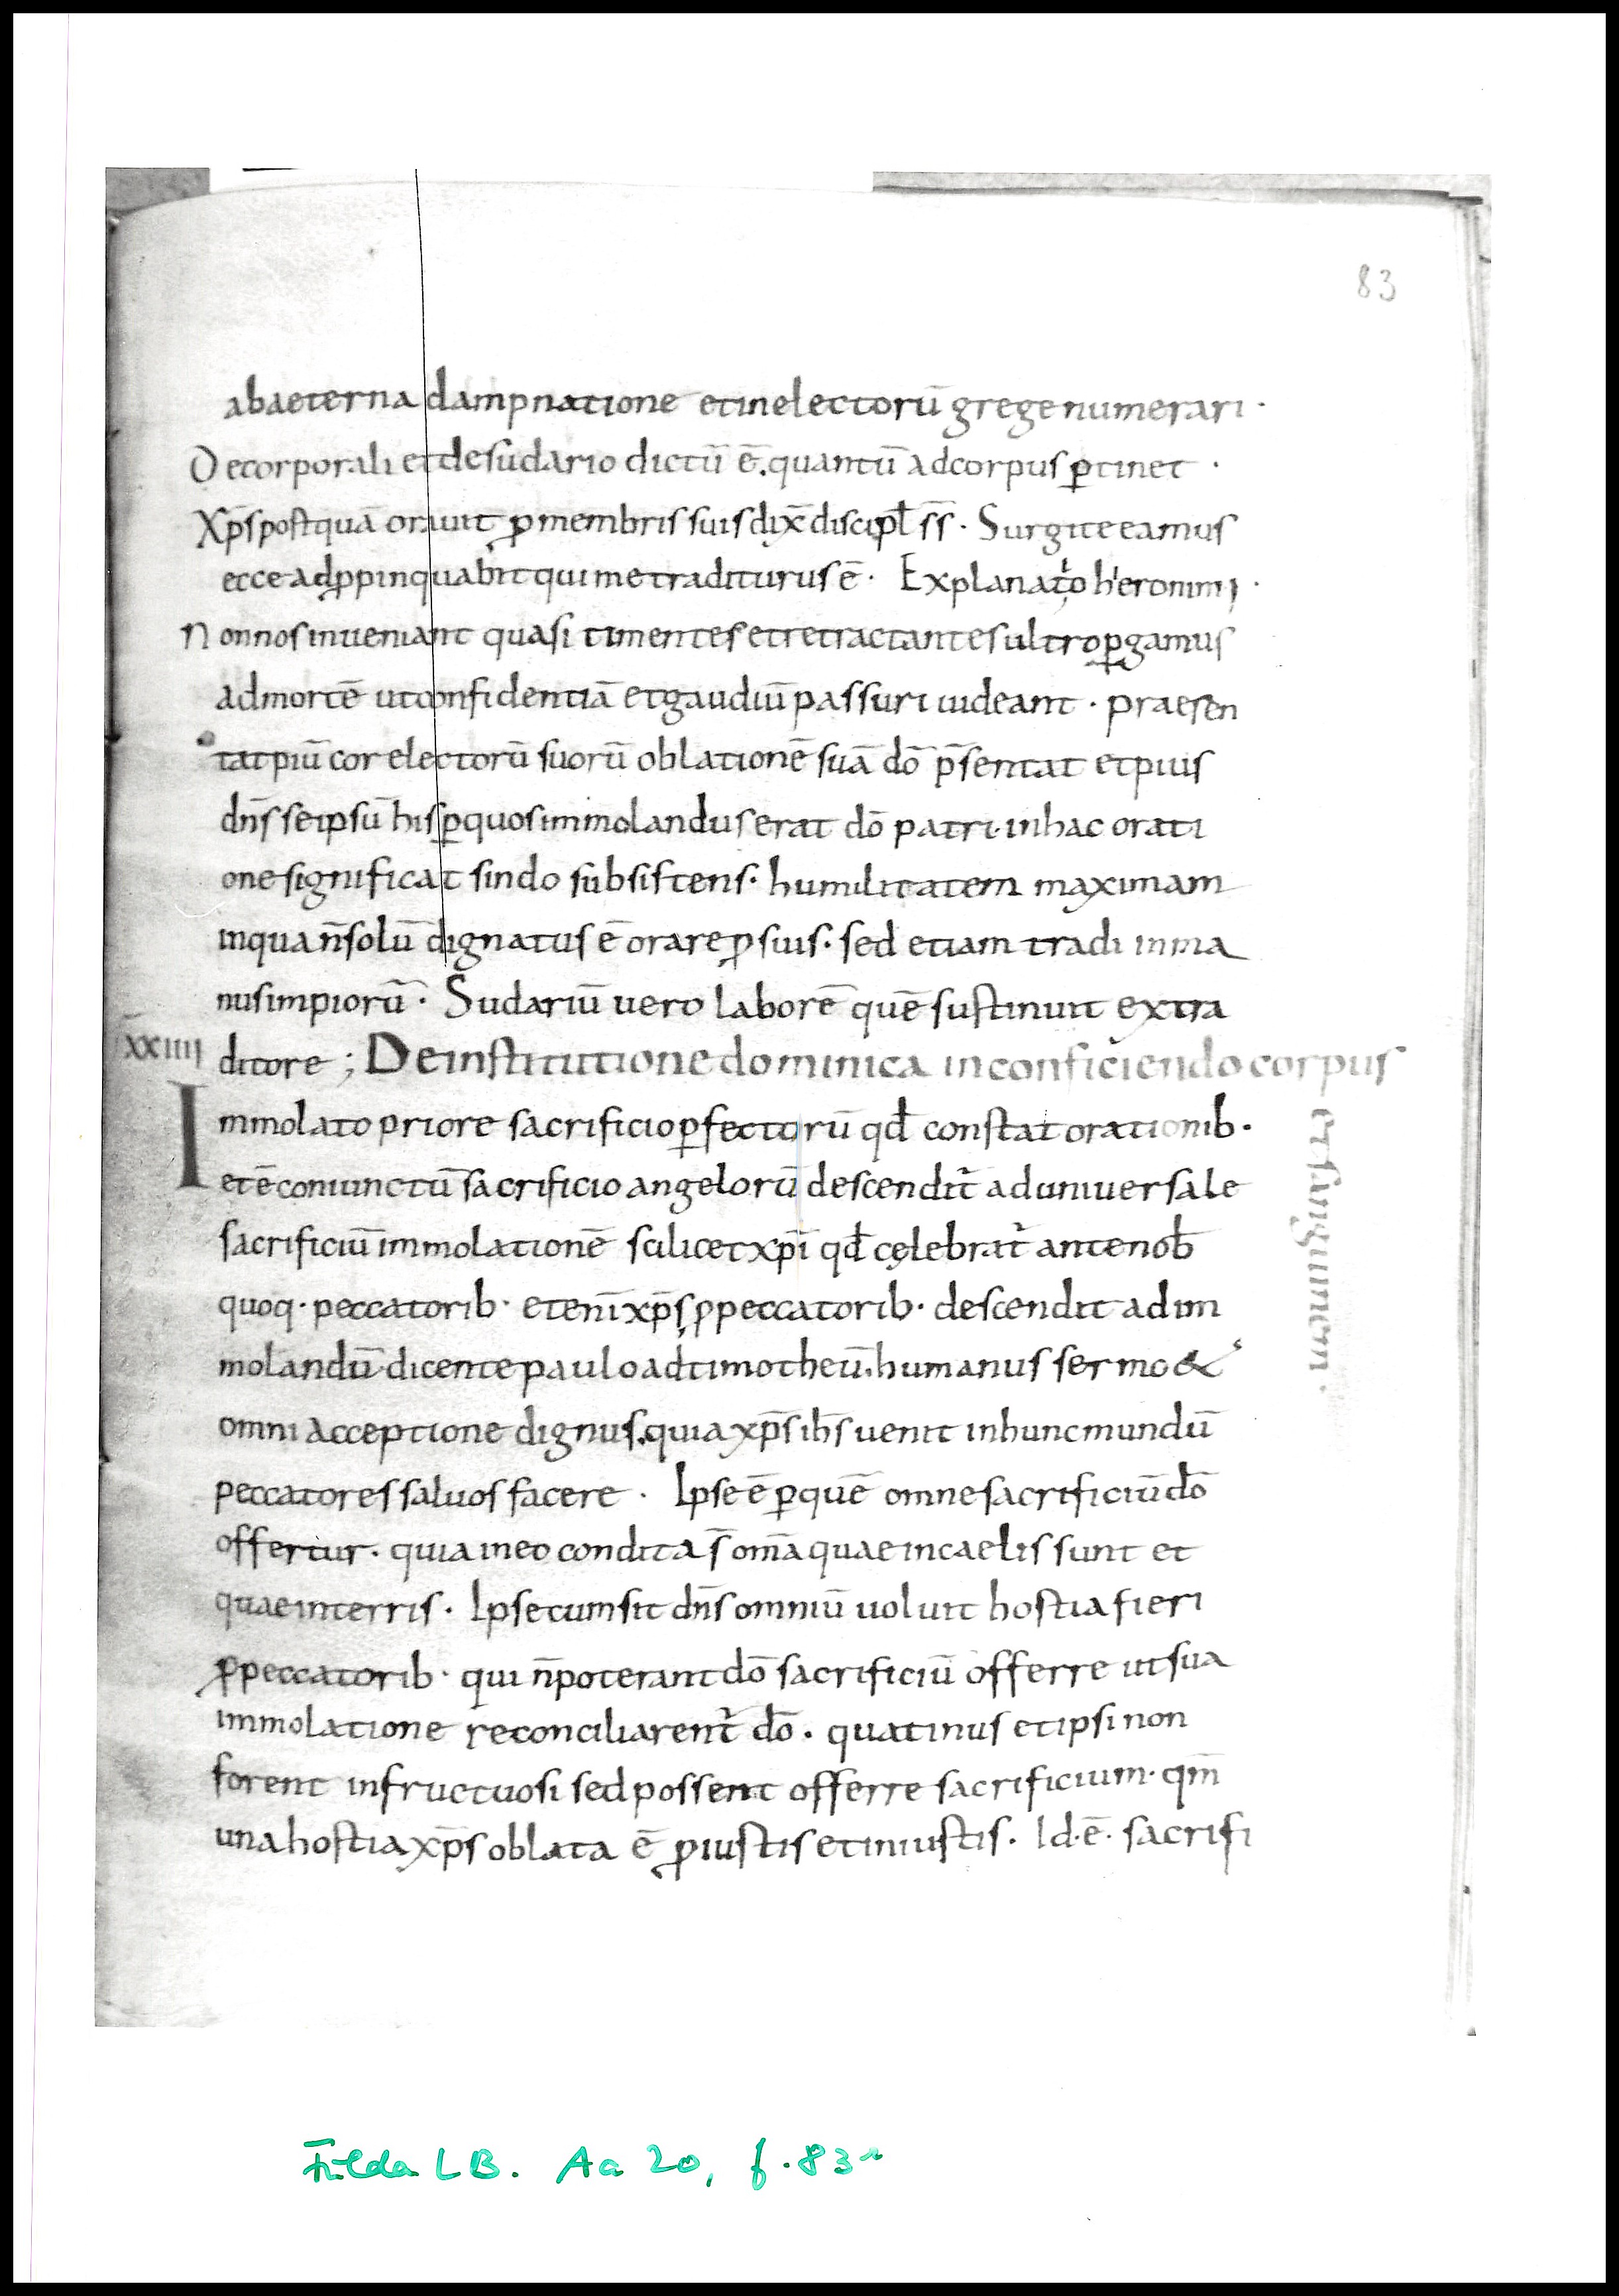 83
abaeterna dampnatione etinelectorū gregenumerari ·
Decorporali etdesudario dictū ē. quantū adcorpus ꝑtinet ·
Xp̄s postquā orauit ꝓmembris suis dix̄ discipl̄ ss̄ · Surgite eamus
ecce adꝓpinquabit quimetraditurus ē · Explanat̉o hieronimi ·
Nonnosinueniant quasi timentes etretractantes ultroꝑgamus
admortē utconfidentiā etgaudiū passuri uideant · praesen
tat piū cor electorū suorū oblationē suā dō p̄sentat etpius
dn̄s seipsū his ꝑquosimmolandus erat dō patri · inhac orati
one significat sindo subsistens · humilitatem maximam
inqua n̄solū dignatus ē orare ꝓ suis · sed etiam tradi inma
nusimpiorū · Sudariū uero laborē quē sustinuit extra
xxiiii ditore ; Deinstitutione dominica inconficiendo corpus
et sanguinem ·
Immolato priore sacrificio ꝑfectorū qd̄ constat orationib ·
et ē coniunctū sacrificio angelorū descendit̉ aduniuersale
sacrificiū immolationē scilicet xp̄i qd̄ cęlebrat̉ antenob̄
quoq · peccatorib · etenī xp̄s ꝓpeccatorib · descendit adim
molandū · dicente paulo adtimotheū. humanus sermo &
omni acceptione dignus. quia xp̄s ih̄s uenit inhuncmundū
peccatores saluos facere · Ipse ē ꝑquē omnesacrificiū dō
offertur · quia ineo condita s̄ om̄a quae incaelis sunt et
quaeinterris · Ipse cumsit dn̄s omniū uoluit hostia fieri
ꝓpeccatorib · qui n̄poterant dō sacrificiū offerre utsua
immolatione reconciliarent̉ dō · quatinus etipsi non
forent infructuosi sed possent offerre sacrificium · qm̄
unahostia xp̄s oblata ē ꝓiustis etiniustis · Id · ē · sacrifi
Fulda LB. Aa 20, f. 83r